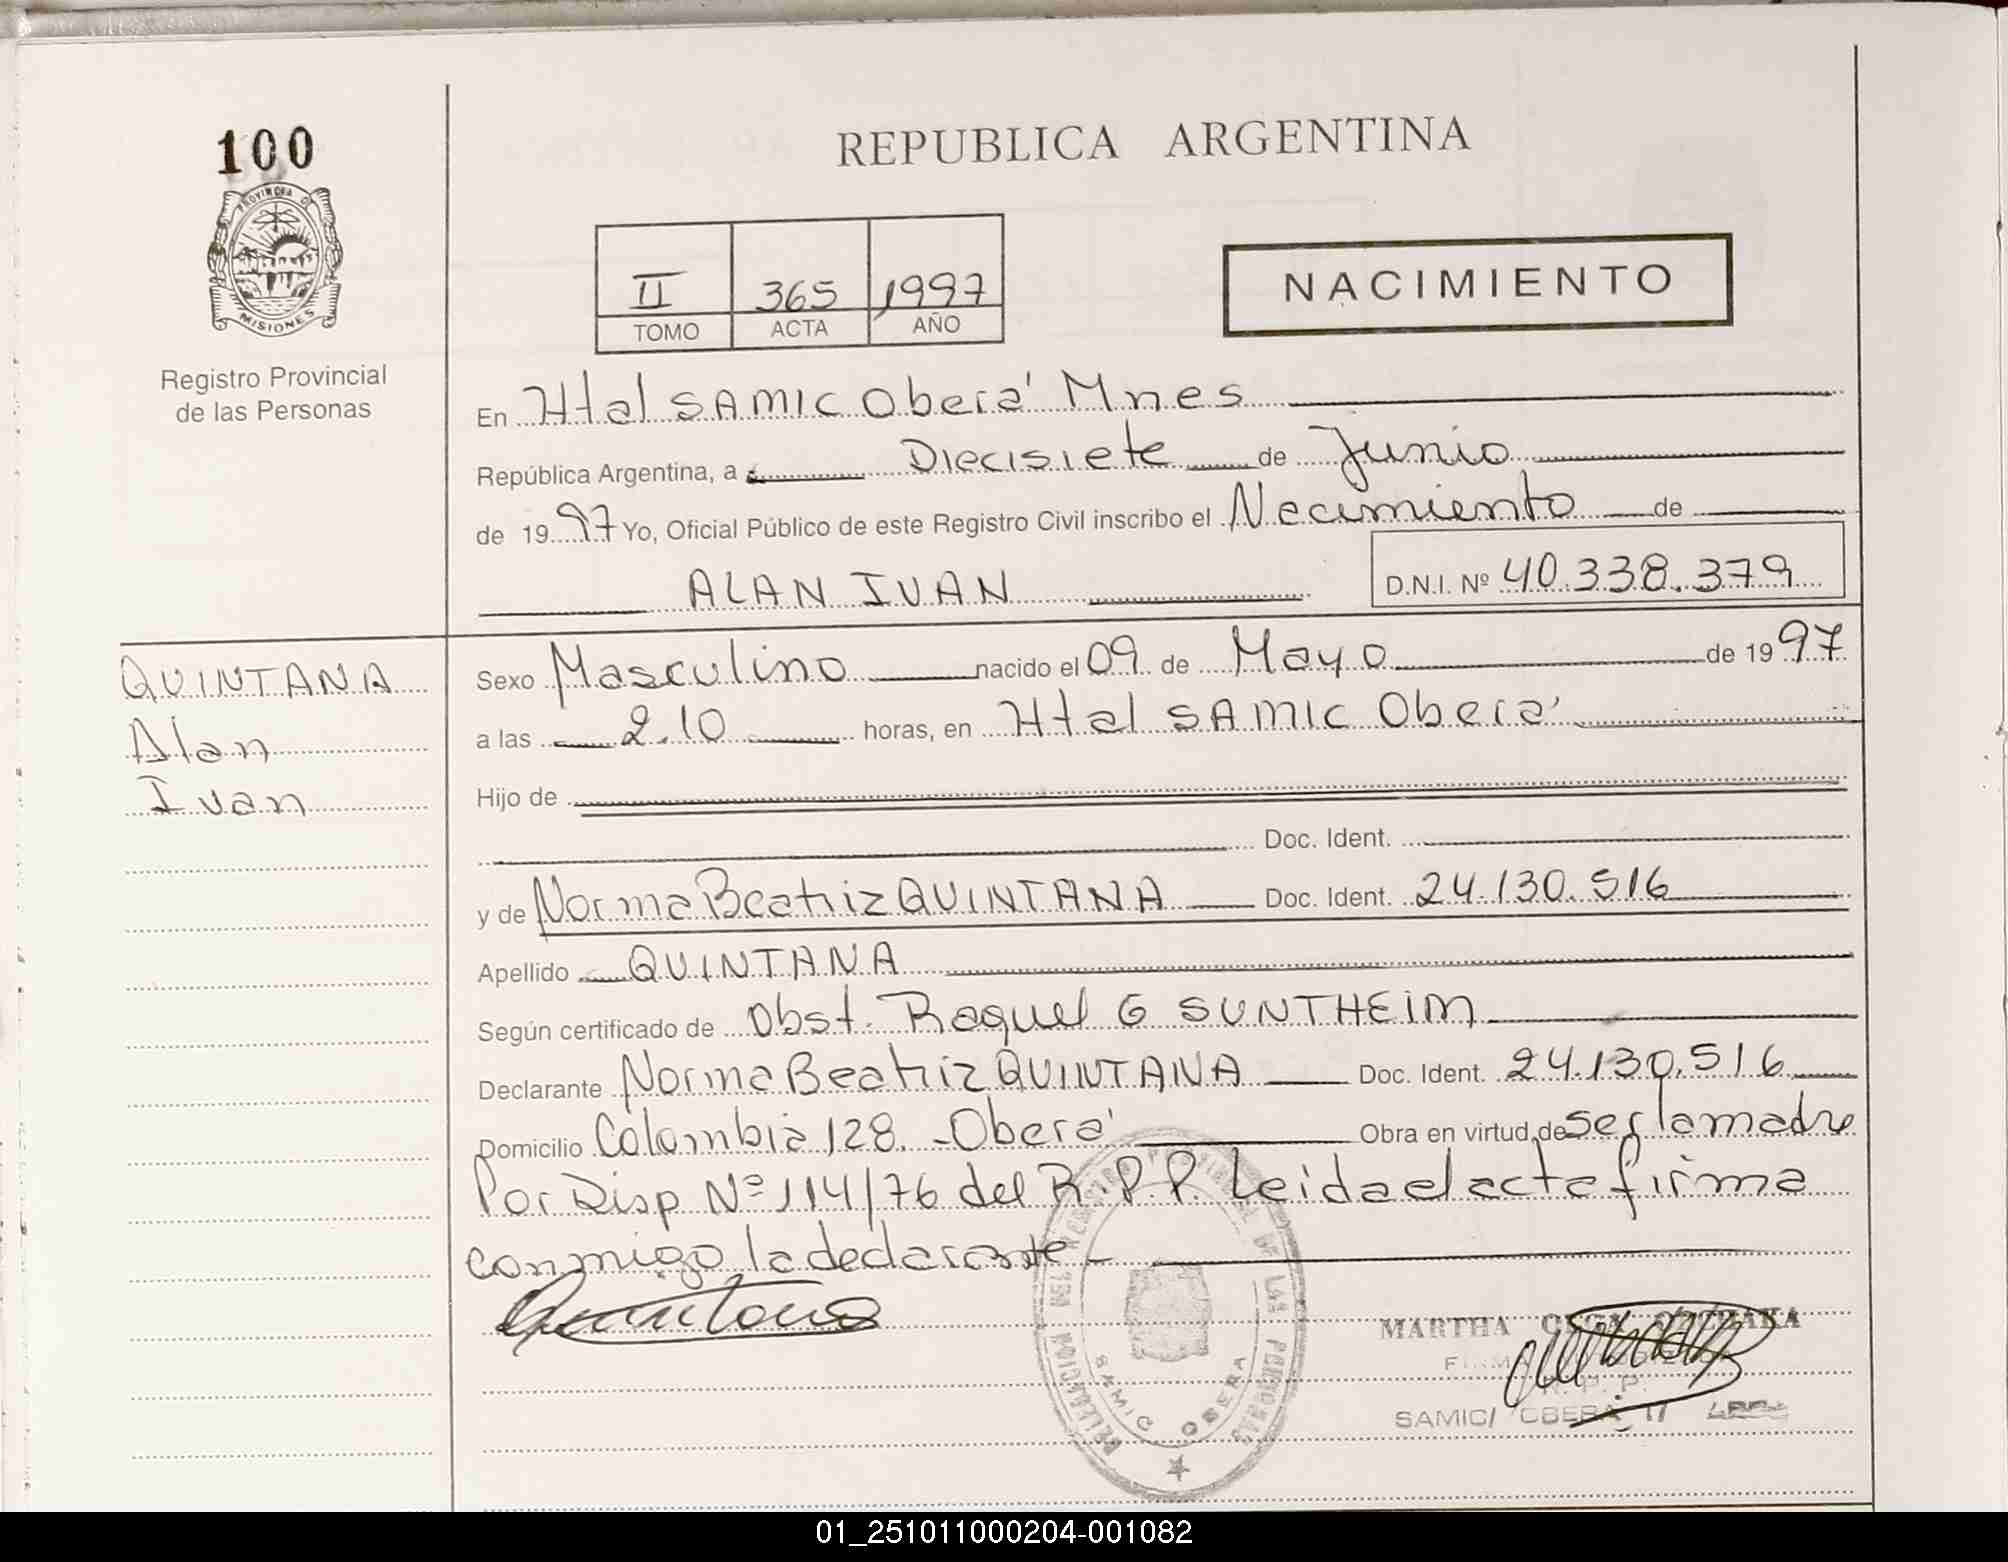 100
PROVINCIA D
MISIONES
Registro Provincial
de las Personas
REPUBLICA ARGENTINA
II 365 1997
TOMO ACTA AÑO
NACIMIENTO
En Htal SAMIC Oberá Mnes
República Argentina, a Diecisiete de Junio
de 1997 Yo, Oficial Público de este Registro Civil inscribo el Nacimiento de
ALAN IVAN D.N.I. Nº 40.338.379
QUINTANA
Alan
Ivan
Sexo Masculino nacido el 09 de Mayo de 1997
a las 2.10 horas, en Htal SAMIC Oberá
Hijo de
Doc. Ident.
y de Norma Beatriz QUINTANA Doc. Ident. 24.130.516
Apellido QUINTANA
Según certificado de Obst. Raquel G SUNTHEIM
Declarante Norma Beatriz QUINTANA Doc. Ident. 24.130.516
Domicilio Colombia 128.-Oberá Obra en virtud de ser la madre
Por Disp Nº 114/76 del R.P.P. Leida el acta firma
conmigo la declarante-
Quintana
DELEGACION DEL REGISTRO PROVINCIAL DE LAS PERSONAS
SAMIC OBERA
MARTHA
R. P. P.
SAMIC/ OBERA
01_251011000204-001082